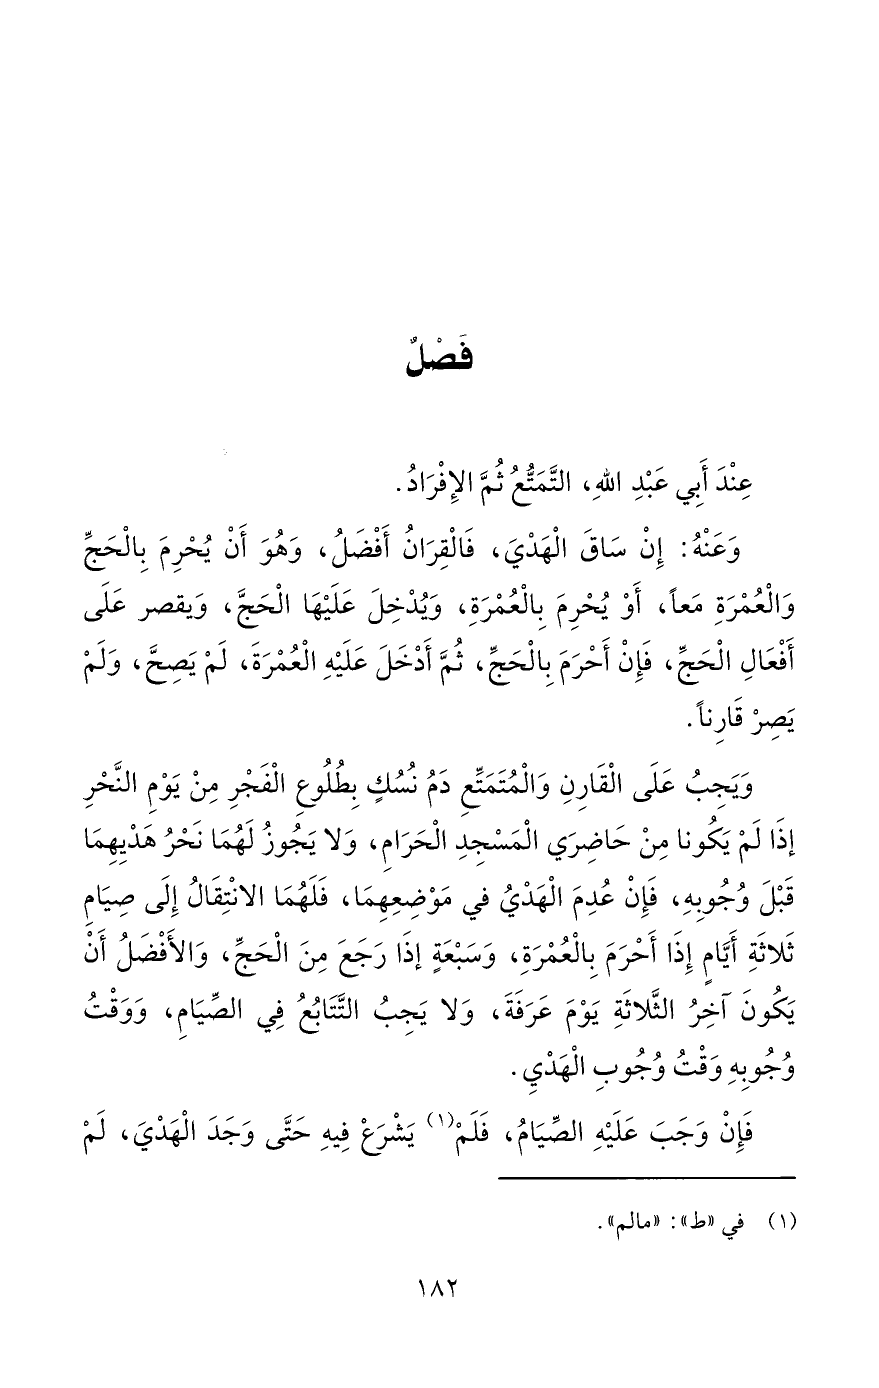 فَصْلٌ
عِنْدَ أَبِي عَبْدِ اللهِ، التَّمَتُّعُ ثُمَّ الإِفْرَادُ.
وَعَنْهُ: إِنْ سَاقَ الْهَدْيَ، فَالْقِرَانُ أَفْضَلُ، وَهُوَ أَنْ يُحْرِمَ بِالْحَجِّ
وَالْعُمْرَةِ مَعاً، أَوْ يُحْرِمَ بِالْعُمْرَةِ، وَيُدْخِلَ عَلَيْهَا الْحَجَّ، وَيقصر عَلَى
أَفْعَالِ الْحَجِّ، فَإِنْ أَحْرَمَ بِالْحَجِّ، ثُمَّ أَدْخَلَ عَلَيْهِ الْعُمْرَةَ، لَمْ يَصِحَّ، وَلَمْ
يَصِرْ قَارِناً.
وَيَجِبُ عَلَى الْقَارِنِ وَالْمُتَمَتِّعِ دَمُ نُسُكٍ بِطُلُوعِ الْفَجْرِ مِنْ يَوْمِ النَّحْرِ
إِذَا لَمْ يَكُونا مِنْ حَاضِرَي الْمَسْجِدِ الْحَرَامِ، وَلا يَجُوزُ لَهُمَا نَحْرُ هَدْيِهِمَا
قَبْلَ وُجُوبِهِ، فَإِنْ عُدِمَ الْهَدْيُ في مَوْضِعِهِمَا، فَلَهُمَا الانْتِقَالُ إِلَى صِيَامِ
ثَلاثَةِ أَيَّامٍ إِذَا أَحْرَمَ بِالْعُمْرَةِ، وَسَبْعَةٍ إِذَا رَجَعَ مِنَ الْحَجِّ، وَالأَفْضَلُ أَنْ
يَكُونَ آخِرُ الثَّلاثَةِ يَوْمَ عَرَفَةَ، وَلا يَجِبُ التَّتَابُعُ فِي الصِّيَامِ، وَوَقْتُ
وُجُوبِهِ وَقْتُ وُجُوبِ الْهَدْيِ.
فَإِنْ وَجَبَ عَلَيْهِ الصِّيَامُ، فَلَمْ(١) يَشْرَعْ فِيهِ حَتَّى وَجَدَ الْهَدْيَ، لَمْ
(١) في «ط»: «مالم».
١٨٢